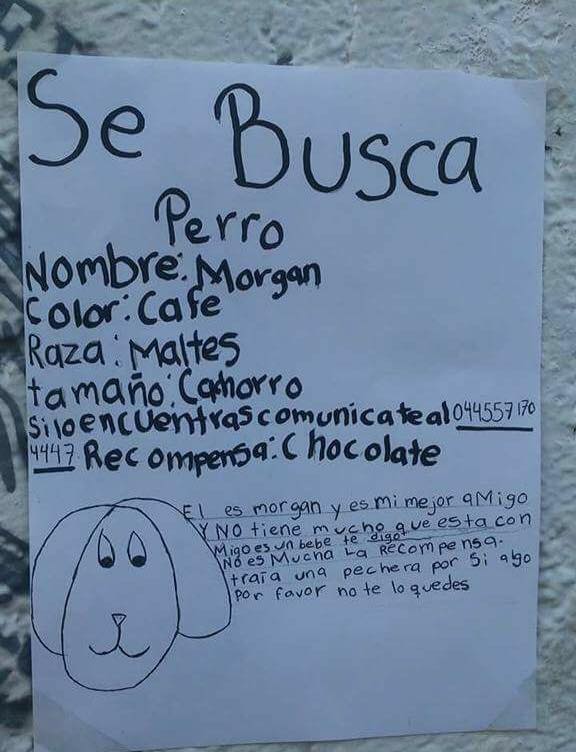 Se Busca
Perro
Nombre: Morgan
Color: Cafe
Raza: Maltes
tamaño: Cachorro
Si lo encuentras comunicate al 044557170
4447 Recompensa: Chocolate
El es morgan y es mi mejor aMigo
Y NO tiene mucho que esta con
Migo es un bebe te digo
NO es Mucha La Recompensa.
traia una pechera por si algo
por favor no te lo quedes